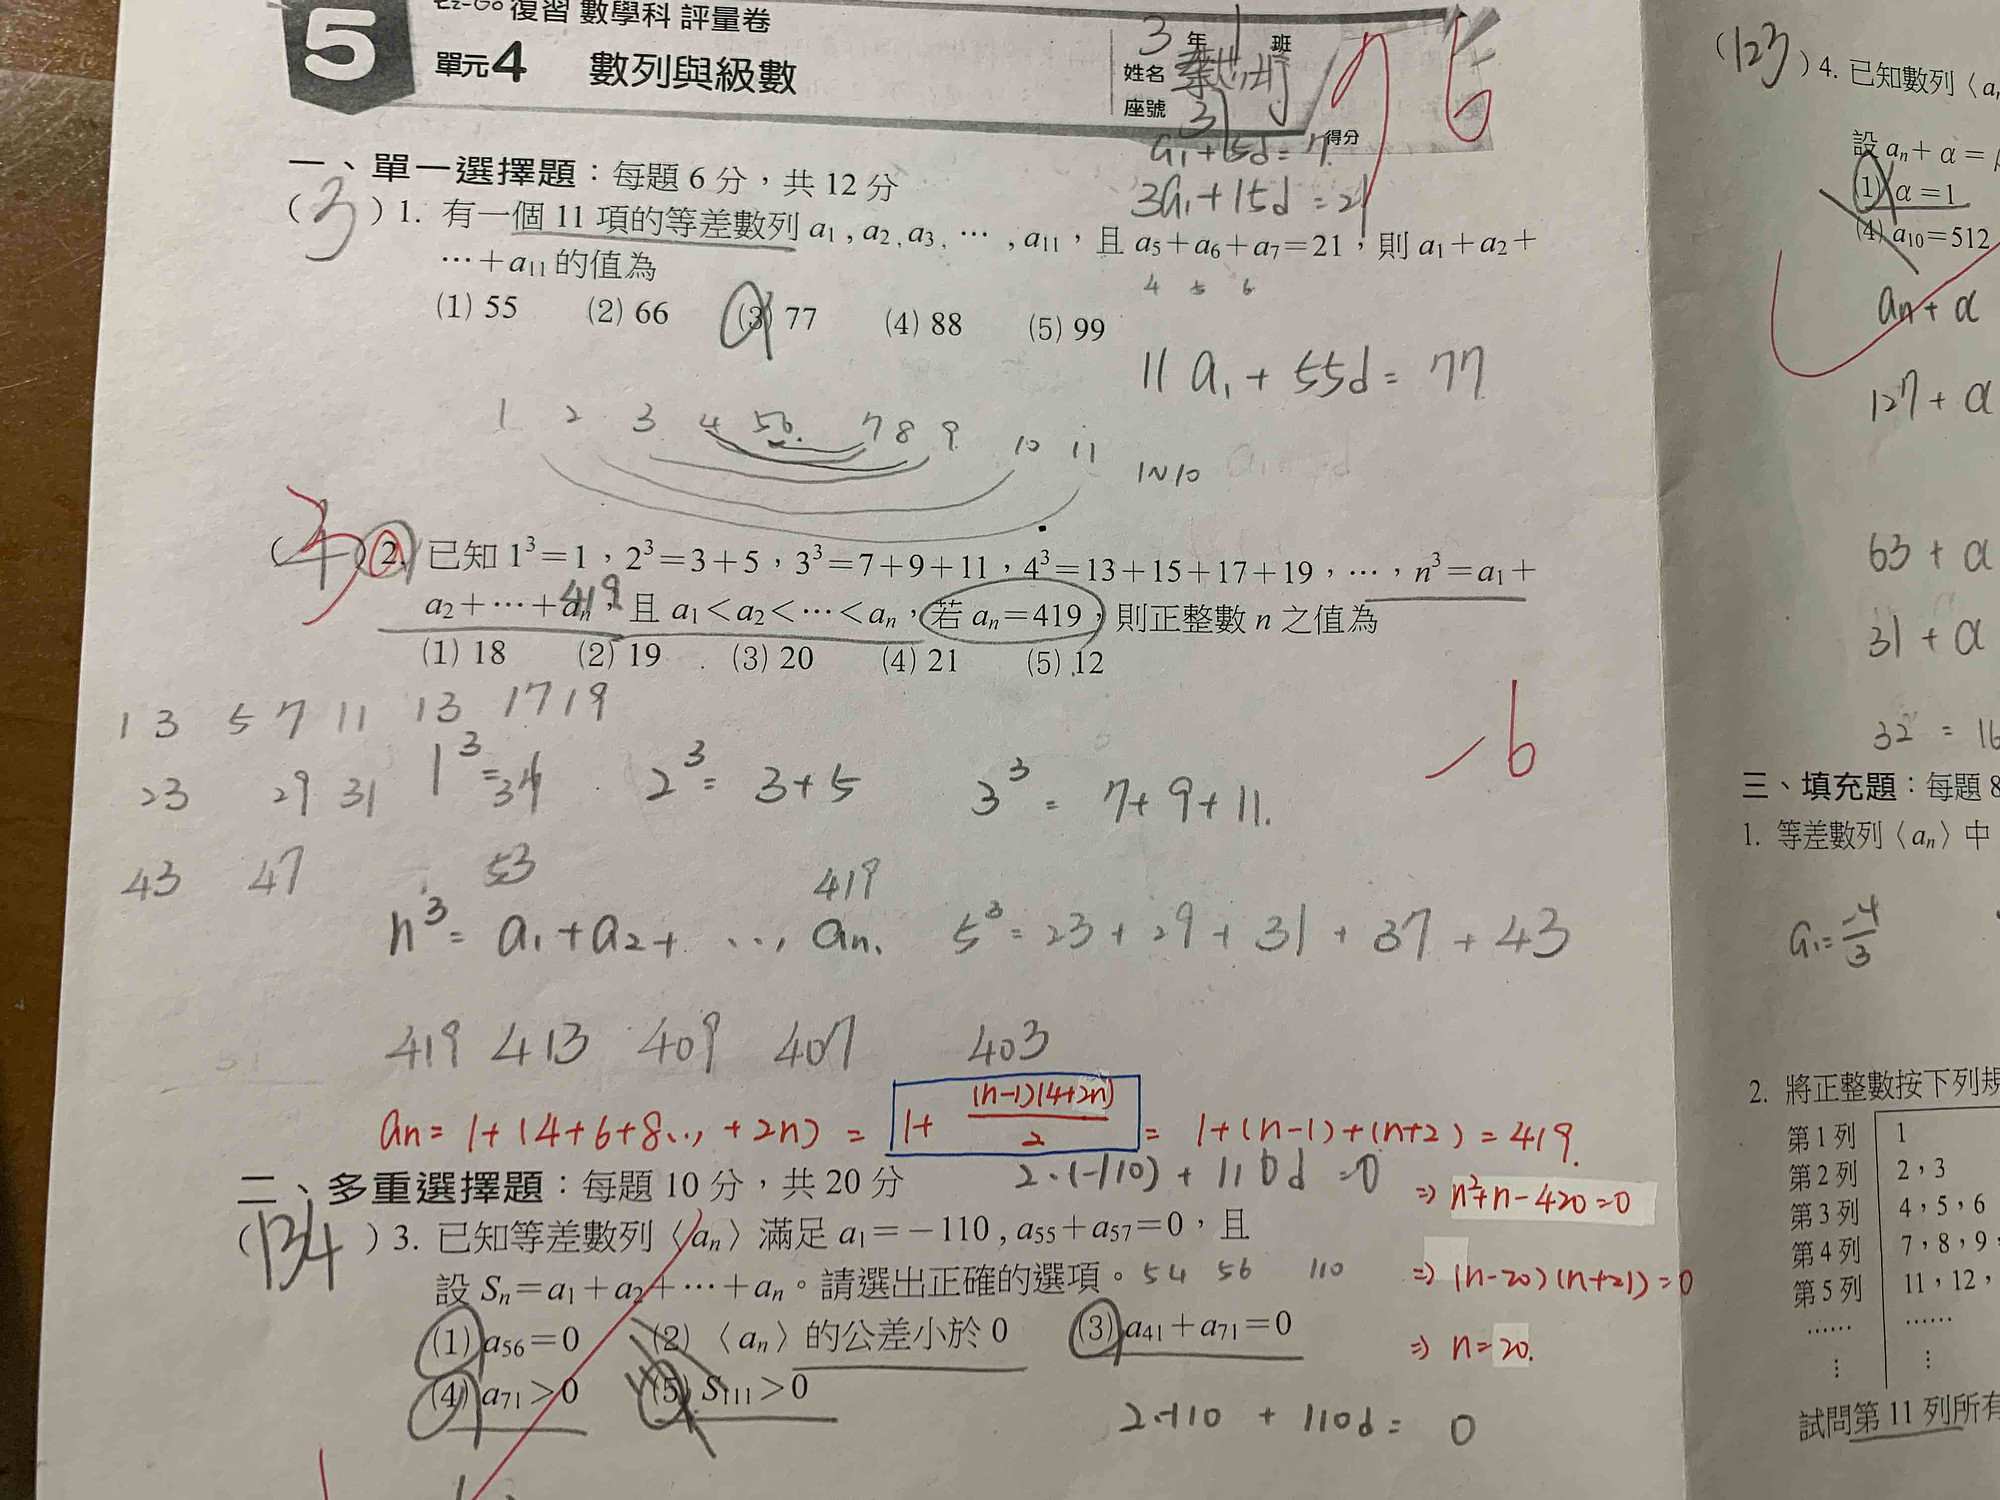 5
Ez-Go 復習 數學科 評量卷
單元4 數列與級數
3 年 1 班
姓名
座號 31
得分
96
一、單一選擇題：每題 6 分，共 12 分
a₁+5d=7
3a₁+15d=21
(3) 1. 有一個 11 項的等差數列 a₁, a₂, a₃, ⋯, a₁₁，且 a₅+a₆+a₇=21，則 a₁+a₂+
⋯+a₁₁ 的值為
4 5 6
(1) 55 (2) 66 (3) 77 (4) 88 (5) 99
11a₁+55d=77
1 2 3 4 5 6 7 8 9 10 11
1~10
3
(4) 2. 已知 1³=1，2³=3+5，3³=7+9+11，4³=13+15+17+19，⋯，n³=a₁+
a₂+⋯+aₙ，且 a₁<a₂<⋯<aₙ，若 aₙ=419，則正整數 n 之值為
419
(1) 18 (2) 19 (3) 20 (4) 21 (5) 12
-6
1 3 5 7 11 13 17 19
23 29 31
43 47 53
2³=3+5
3³=7+9+11.
419
n³=a₁+a₂+ ..., an.
5³=23+29+31+37+43
419 413 409 407 403
an=1+(4+6+8...+2n)=1+(n-1)(4+2n)/2=1+(n-1)+(n+2)=419.
⇒ n²+n-420=0
⇒ (n-20)(n+21)=0
⇒ n=20.
二、多重選擇題：每題 10 分，共 20 分
2·(-110)+110d=0
(134) 3. 已知等差數列〈aₙ〉滿足 a₁=−110, a₅₅+a₅₇=0，且
設 Sₙ=a₁+a₂+⋯+aₙ。請選出正確的選項。
54 56 110
(1) a₅₆=0 (2)〈aₙ〉的公差小於 0 (3) a₄₁+a₇₁=0
(4) a₇₁>0 (5) S₁₁₁>0
2·-110+110d=0
(123) 4. 已知數列〈aₙ
設 aₙ+α=
(1) α=1
(4) a₁₀=512
an+α
127+α
63+α
31+α
32=16
三、填充題：每題 8
1. 等差數列〈aₙ〉中
a₁=-4/3
2. 將正整數按下列規
第 1 列 1
第 2 列 2，3
第 3 列 4，5，6
第 4 列 7，8，9，
第 5 列 11，12，
⋯⋯ ⋯⋯
⋮ ⋮
試問第 11 列所有